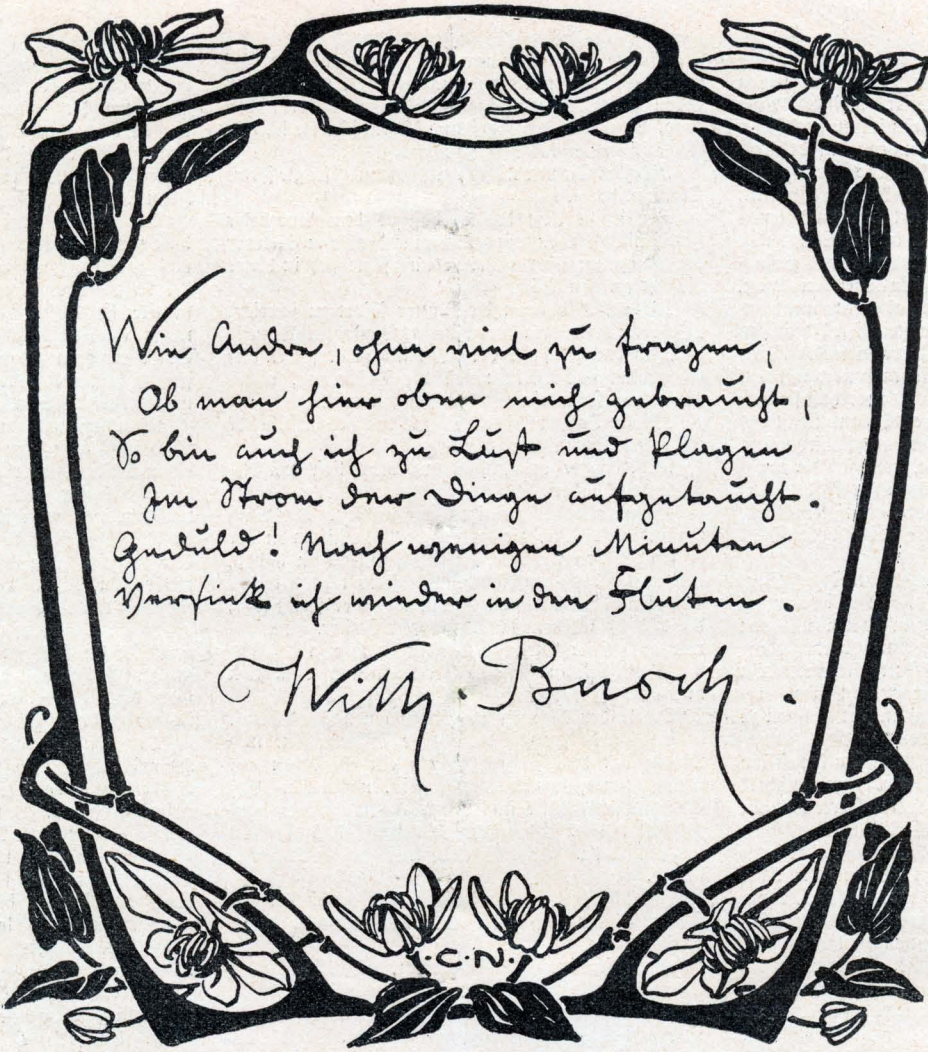 Wie Andre, ohne viel zu fragen,
Ob man hier oben mich gebraucht,
So bin auch ich zu Lust und Plagen
Im Strom der Dinge aufgetaucht.
Geduld! Nach wenigen Minuten
Versink ich wieder in den Fluten.
Wilh. Busch.
·C·N·